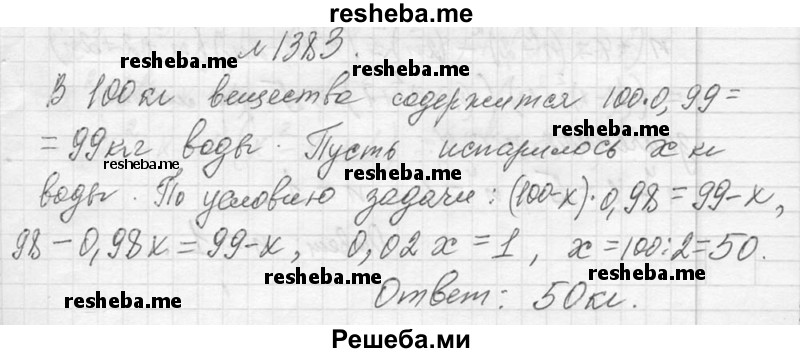 resheba.me
№ 1383.
resheba.me resheba.me
В 100 кг вещества содержится 100·0,99=
resheba.me
= 99 кг воды. Пусть испарилось x кг
resheba.me
воды. По условию задачи: (100-x)·0,98=99-x,
resheba.me
98-0,98x=99-x, 0,02x=1, x=100:2=50.
resheba.me resheba.me
resheba.me
Ответ: 50 кг.
Решеба.ми